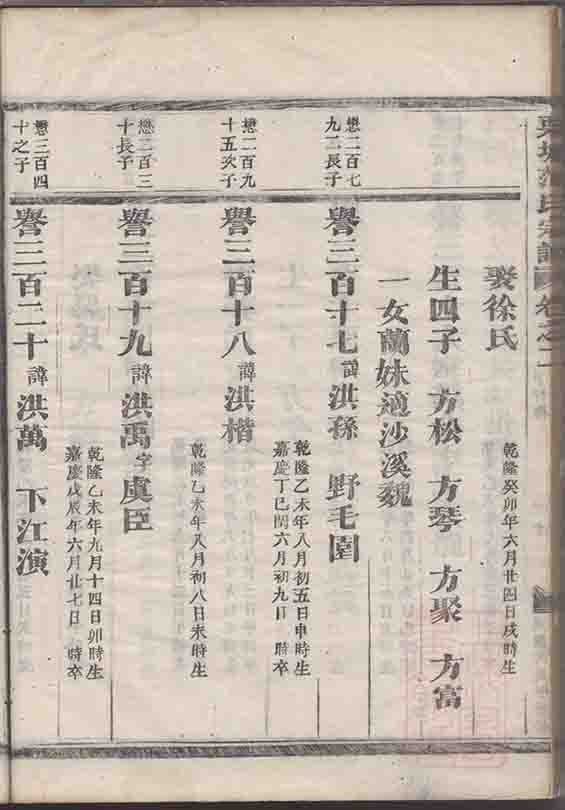 氏宗譜 卷之二
娶徐氏
乾隆癸卯年六月廿四日戌時生
生四子 方松 方琴 方聚 方富
一女蘭妹適沙溪魏
懋二百七
九二長子
譽三百十七諱洪孫 野毛園
乾隆乙未年八月初五日申時生
嘉慶丁巳閏六月初九日 時卒
懋二百九
十五次子
譽三百十八諱洪楷
乾隆乙未年八月初八日未時生
懋二百三
十長子
譽三百十九諱洪禹字虞臣
乾隆乙未年九月十四日卯時生
嘉慶戊辰年六月廿七日 時卒
懋三百四
十之子
譽三百二十諱洪萬 下江演